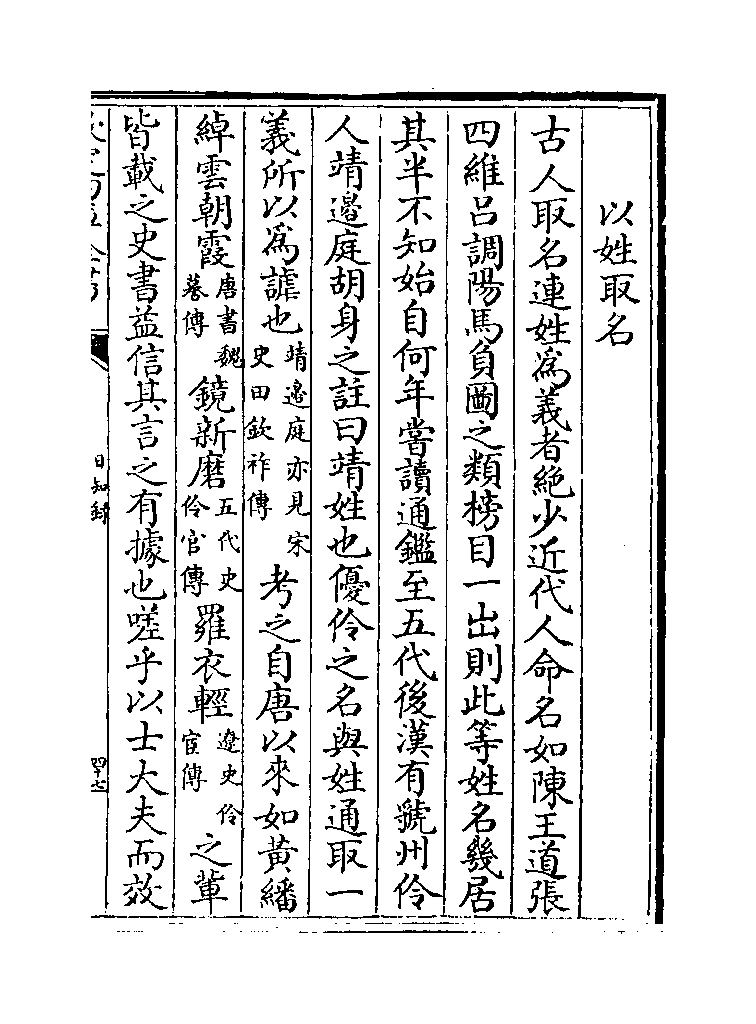 以姓取名
古人取名連姓爲義者絶少近代人命名如陳王道張
四維吕調陽馬負圖之類榜目一出則此等姓名幾居
其半不知始自何年嘗讀通鑑至五代後漢有虢州伶
人靖邊庭胡身之註曰靖姓也優伶之名與姓通取一
義所以爲謔也靖邊庭亦見宋史田欽祚傳考之自唐以來如黄繙
綽雲朝霞唐書魏謩傳鏡新磨五代史伶官傳羅衣輕遼史伶官傳之輩
皆載之史書益信其言之有據也嗟乎以士大夫而效
日知録